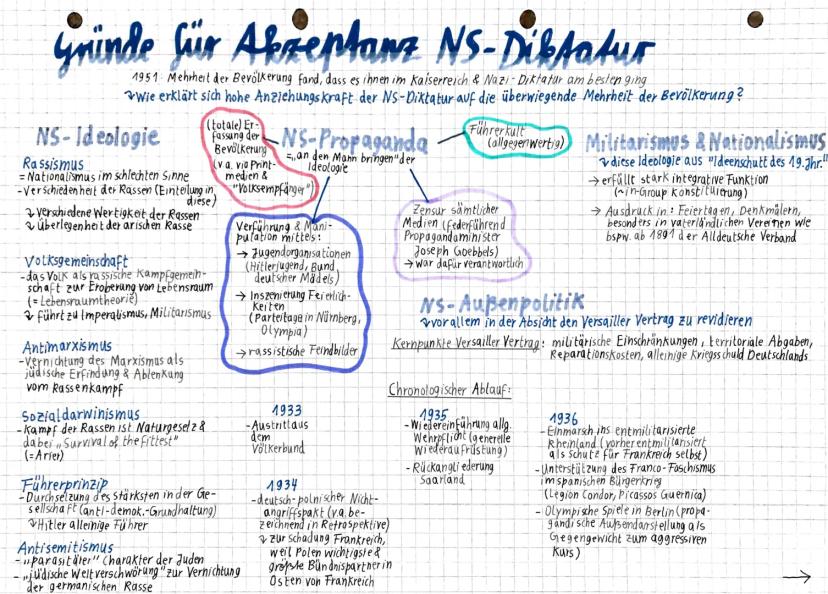 Gründe für Akzeptanz NS-Diktatur
1951: Mehrheit der Bevölkerung fand, dass es ihnen im Kaiserreich & Nazi-Diktatur am besten ging
↳ Wie erklärt sich hohe Anziehungskraft der NS-Diktatur auf die überwiegende Mehrheit der Bevölkerung?
NS-Ideologie
Rassismus
= Nationalismus im schlechten Sinne
- Verschiedenheit der Rassen (Einteilung in
diese)
↳ verschiedene Wertigkeit der Rassen
↳ Überlegenheit der arischen Rasse
Volksgemeinschaft
- das Volk als rassische Kampfgemein-
schaft zur Eroberung von Lebensraum
(= Lebensraumtheorie)
↳ führt zu Imperalismus, Militarismus
Antimarxismus
- Vernichtung des Marxismus als
jüdische Erfindung & Ablenkung
vom Rassenkampf
Sozialdarwinismus
- Kampf der Rassen ist Naturgesetz &
dabei „Survival of the fittest"
(= Arier)
Führerprinzip
- Durchsetzung des Stärksten in der Ge-
sellschaft (anti-demok.-Grundhaltung)
↳ Hitler alleinige Führer
Antisemitismus
- "parasitärer" Charakter der Juden
- "jüdische Weltverschwörung" zur Vernichtung
der germanischen Rasse
(totale) Er-
fassung der
Bevölkerung
(v.a. via Print-
medien &
"Volksempfänger")
NS-Propaganda
= „an den Mann bringen" der
Ideologie
Führerkult
(allgegenwertig)
Verführung & Mani-
pulation mittels:
→ Jugendorganisationen
(Hitlerjugend, Bund
deutscher Mädels)
→ Inszenierung Feierlich-
keiten
(Parteitage in Nürnberg,
Olympia)
→ rassistische Feindbilder
Zensur sämtlicher
Medien (federführend
Propagandaminister
Joseph Goebbels)
→ war dafür verantwortlich
Militarismus & Nationalismus
↳ diese Ideologie aus "Ideenschutt des 19. Jhr."
→ erfüllt stark integrative Funktion
(~in-Group konstituierung)
→ Ausdruck in: Feiertagen, Denkmälern,
besonders in vaterländlichen Vereinen wie
bspw. ab 1891 der Alldeutsche Verband
NS-Außenpolitik
↳ vor allem in der Absicht den Versailler Vertrag zu revidieren
Kernpunkte Versailler Vertrag: militärische Einschränkungen, territoriale Abgaben,
Reparationskosten, alleinige Kriegsschuld Deutschlands
Chronologischer Ablauf:
1933
- Austritt aus
dem
Völkerbund
1934
- deutsch-polnischer Nicht-
angriffspakt (v.a. be-
zeichnend in Retrospektive)
↳ zur Schadung Frankreich,
weil Polen wichtigste &
größte Bündnispartner in
Osten von Frankreich
1935
- Wiedereinführung allg.
Wehrpflicht (generelle
Wiederaufrüstung)
- Rückangliederung
Saarland
1936
- Einmarsch ins entmilitarisierte
Rheinland (vorher entmilitarisiert
als Schutz für Frankreich selbst)
- Unterstützung des Franco-Faschismus
im spanischen Bürgerkrieg
(Legion Condor, Picassos Guernica)
- Olympische Spiele in Berlin (propa-
gandische Außendarstellung als
Gegengewicht zum aggressiven
Kurs)
→